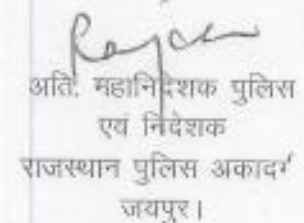 अति. महानिदेशक पुलिस
एवं निदेशक
राजस्थान पुलिस
जयपुर।